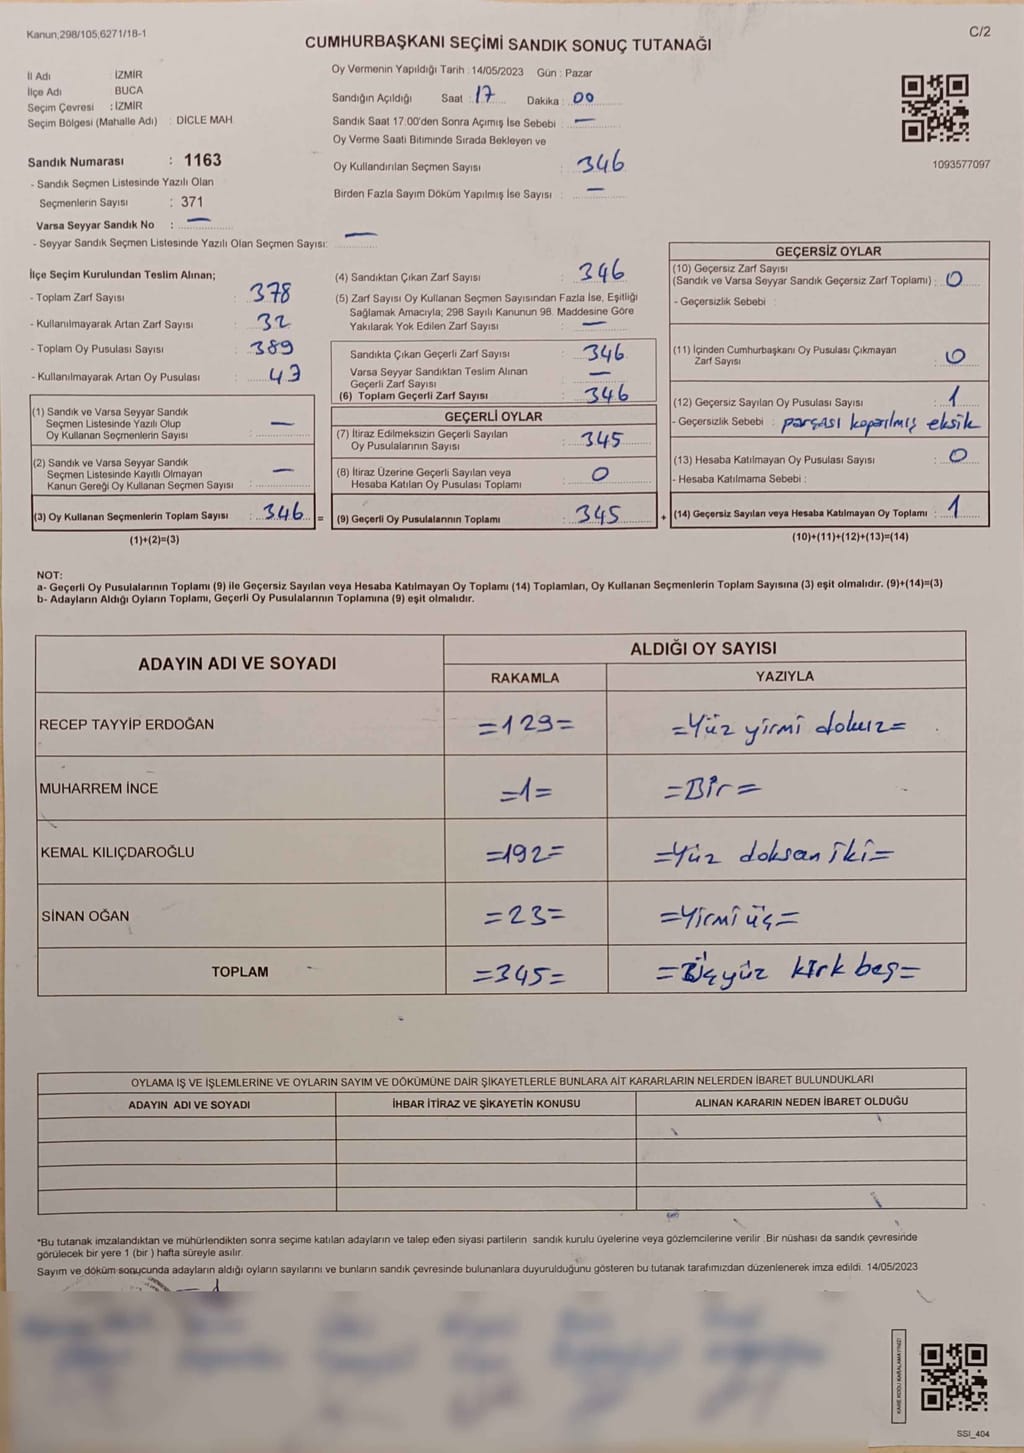 Kanun,298/105,6271/18-1
C/2
CUMHURBAŞKANI SEÇİMİ SANDIK SONUÇ TUTANAĞI
İl Adı : İZMİR
İlçe Adı : BUCA
Seçim Çevresi : İZMİR
Seçim Bölgesi (Mahalle Adı) : DİCLE MAH.
Oy Vermenin Yapıldığı Tarih : 14/05/2023 Gün : Pazar
Sandığın Açıldığı Saat : 17 Dakika : 00
Sandık Saat 17:00'den Sonra Açımış İse Sebebi : —
Oy Verme Saati Bitiminde Sırada Bekleyen ve
Oy Kullandırılan Seçmen Sayısı : 346
Birden Fazla Sayım Döküm Yapılmış İse Sayısı : —
1093577097
Sandık Numarası : 1163
- Sandık Seçmen Listesinde Yazılı Olan
Seçmenlerin Sayısı : 371
Varsa Seyyar Sandık No : —
- Seyyar Sandık Seçmen Listesinde Yazılı Olan Seçmen Sayısı: —
İlçe Seçim Kurulundan Teslim Alınan;
- Toplam Zarf Sayısı : 378
- Kullanılmayarak Artan Zarf Sayısı : 32
- Toplam Oy Pusulası Sayısı : 389
- Kullanılmayarak Artan Oy Pusulası : 43
(1) Sandık ve Varsa Seyyar Sandık
Seçmen Listesinde Yazılı Olup
Oy Kullanan Seçmenlerin Sayısı : —
(2) Sandık ve Varsa Seyyar Sandık
Seçmen Listesinde Kayıtlı Olmayan
Kanun Gereği Oy Kullanan Seçmen Sayısı : —
(3) Oy Kullanan Seçmenlerin Toplam Sayısı : 346 =
(1)+(2)=(3)
(4) Sandıktan Çıkan Zarf Sayısı : 346
(5) Zarf Sayısı Oy Kullanan Seçmen Sayısından Fazla İse, Eşitliği
Sağlamak Amacıyla; 298 Sayılı Kanunun 98. Maddesine Göre
Yakılarak Yok Edilen Zarf Sayısı : —
Sandıkta Çıkan Geçerli Zarf Sayısı : 346
Varsa Seyyar Sandıktan Teslim Alınan
Geçerli Zarf Sayısı : —
(6) Toplam Geçerli Zarf Sayısı : 346
GEÇERLİ OYLAR
(7) İtiraz Edilmeksizin Geçerli Sayılan
Oy Pusulalarının Sayısı : 345
(8) İtiraz Üzerine Geçerli Sayılan veya
Hesaba Katılan Oy Pusulası Toplamı : 0
(9) Geçerli Oy Pusulalarının Toplamı : 345 +
GEÇERSİZ OYLAR
(10) Geçersiz Zarf Sayısı
(Sandık ve Varsa Seyyar Sandık Geçersiz Zarf Toplamı) : 0
- Geçersizlik Sebebi :
(11) İçinden Cumhurbaşkanı Oy Pusulası Çıkmayan
Zarf Sayısı : 0
(12) Geçersiz Sayılan Oy Pusulası Sayısı : 1
- Geçersizlik Sebebi : parçası koparılmış eksik
(13) Hesaba Katılmayan Oy Pusulası Sayısı : 0
- Hesaba Katılmama Sebebi :
(14) Geçersiz Sayılan veya Hesaba Katılmayan Oy Toplamı : 1
(10)+(11)+(12)+(13)=(14)
NOT:
a- Geçerli Oy Pusulalarının Toplamı (9) ile Geçersiz Sayılan veya Hesaba Katılmayan Oy Toplamı (14) Toplamları, Oy Kullanan Seçmenlerin Toplam Sayısına (3) eşit olmalıdır. (9)+(14)=(3)
b- Adayların Aldığı Oyların Toplamı, Geçerli Oy Pusulalarının Toplamına (9) eşit olmalıdır.
ADAYIN ADI VE SOYADI
ALDIĞI OY SAYISI
RAKAMLA YAZIYLA
RECEP TAYYİP ERDOĞAN =129= =Yüz yirmi dokuz=
MUHARREM İNCE =1= =Bir=
KEMAL KILIÇDAROĞLU =192= =Yüz doksan iki=
SİNAN OĞAN =23= =Yirmi üç=
TOPLAM =345= =Üçyüz kırk beş=
OYLAMA İŞ VE İŞLEMLERİNE VE OYLARIN SAYIM VE DÖKÜMÜNE DAİR ŞİKAYETLERLE BUNLARA AİT KARARLARIN NELERDEN İBARET BULUNDUKLARI
ADAYIN ADI VE SOYADI İHBAR İTİRAZ VE ŞİKAYETİN KONUSU ALINAN KARARIN NEDEN İBARET OLDUĞU
*Bu tutanak imzalandıktan ve mühürlendikten sonra seçime katılan adayların ve talep eden siyasi partilerin sandık kurulu üyelerine veya gözlemcilerine verilir .Bir nüshası da sandık çevresinde
görülecek bir yere 1 (bir ) hafta süreyle asılır.
Sayım ve döküm sonucunda adayların aldığı oyların sayılarını ve bunların sandık çevresinde bulunanlara duyurulduğunu gösteren bu tutanak tarafımızdan düzenlenerek imza edildi. 14/05/2023
KARE KODU KARALAMAYINIZ!
SSI_404